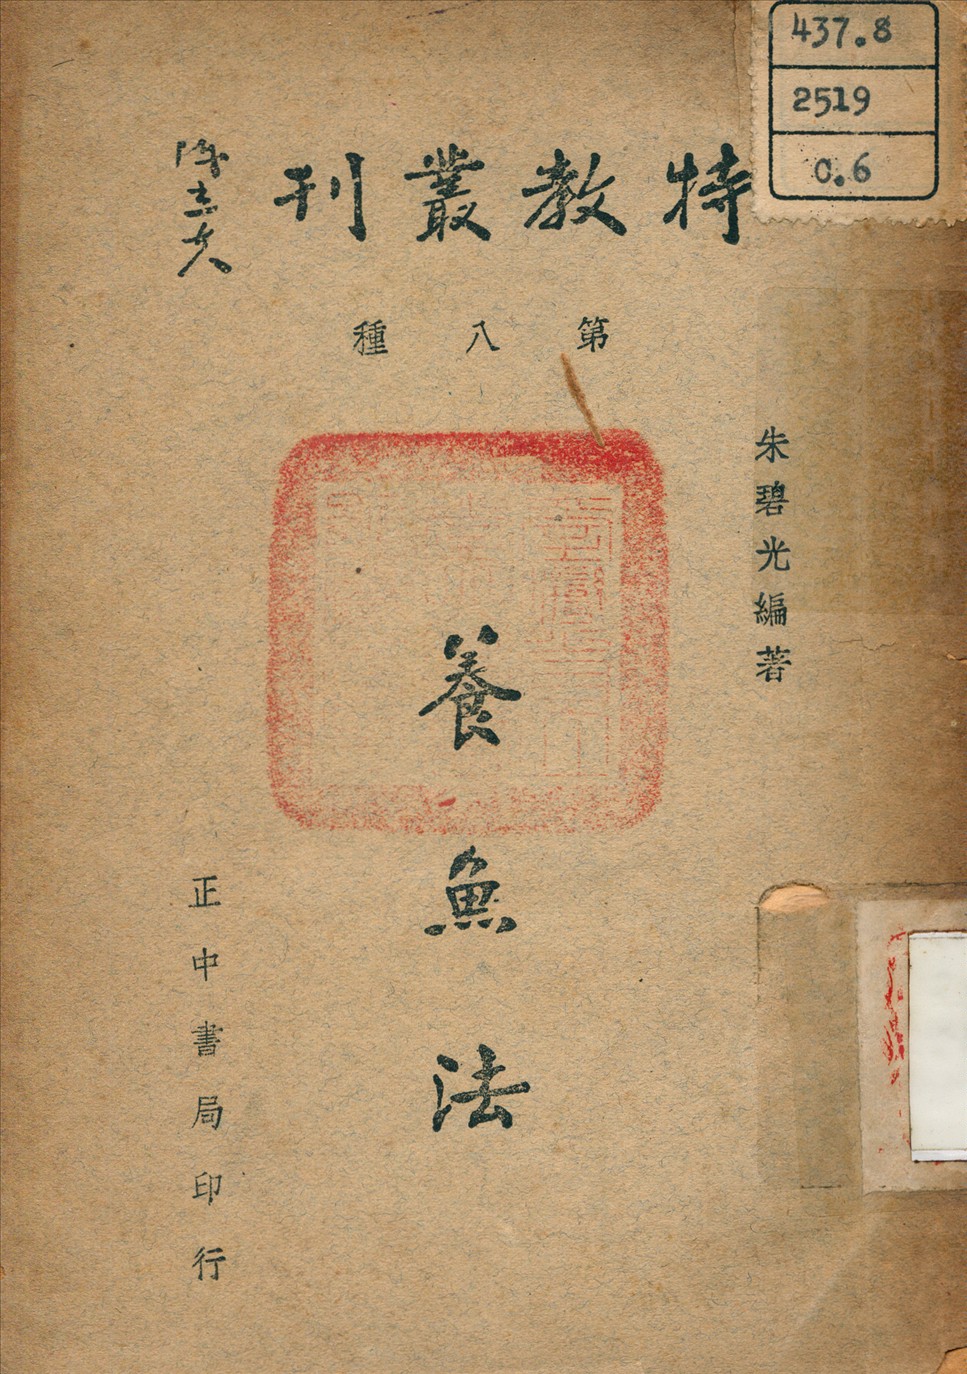 437.8
2519
0.6
特教叢刊
第八種
朱碧光編著
養魚法
正中書局印行